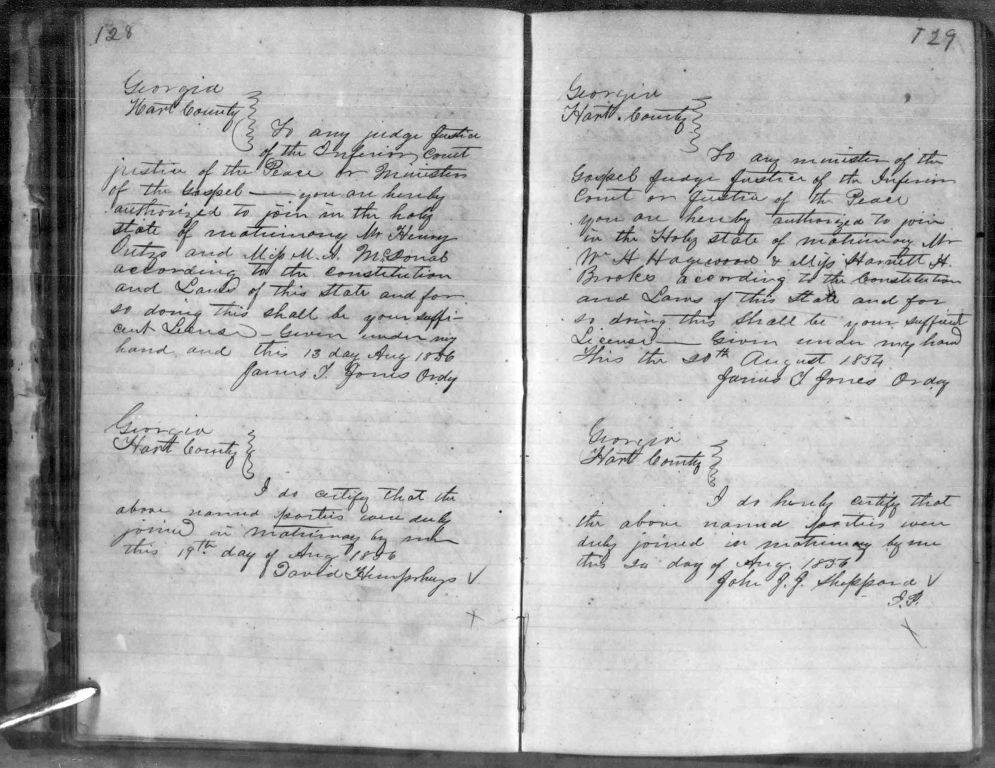 128
Georgia
Hart County
To any judge Justice
of the Inferior Court
justice of the Peace or Minister
of the Gospel — you are hereby
authorized to join in the holy
state of matrimony Mr Henry
and Miss M. A. McDonal
according to the constitution
and Laws of this State and for
so doing this shall be your suffi-
cent License — Given under my
hand and this 13 day Aug 1856
James T. Jones Ordy
Georgia
Hart County
I do certify that the
above named parties were duly
joined in matrimony by me
this 19th day of Aug 1856
David Humphrys
129
Georgia
Hart County
To any minister of the
Gospel Judge Justice of the Inferior
Court or Justice of the Peace
you are hereby authorized to join
in the Holy state of matrimony Mr
Wm A Haywood & Miss Harriett H.
Brooks according to the Constitution
and Laws of this State and for
so doing this shall be your sufficient
License — Given under my hand
this the 20th August 1856
James T Jones Ordy
Georgia
Hart County
I do hereby certify that
the above named parties were
duly joined in matrimony by me
this 20 day of Aug. 1856
John J. J. Sheppard
J.P.